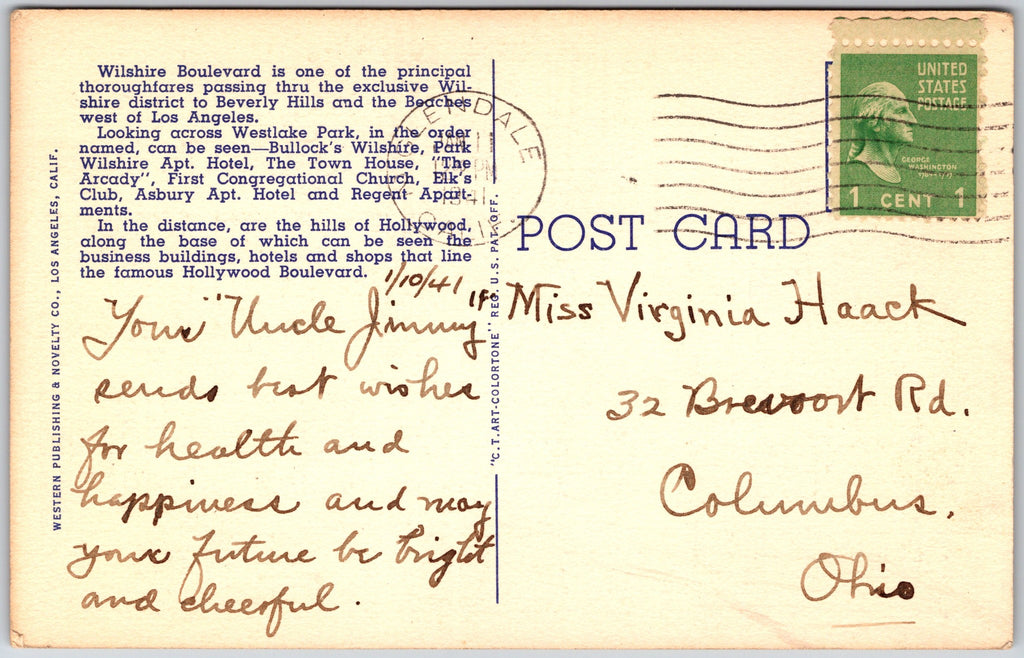 Wilshire Boulevard is one of the principal
thoroughfares passing thru the exclusive Wil-
shire district to Beverly Hills and the Beaches
west of Los Angeles.
Looking across Westlake Park, in the order
named, can be seen—Bullock's Wilshire, Park
Wilshire Apt. Hotel, The Town House, "The
Arcady", First Congregational Church, Elk's
Club, Asbury Apt. Hotel and Regent Apart-
ments.
In the distance, are the hills of Hollywood,
along the base of which can be seen the
business buildings, hotels and shops that line
the famous Hollywood Boulevard.
WESTERN PUBLISHING & NOVELTY CO., LOS ANGELES, CALIF.
"C.T. ART-COLORTONE" REG. U.S. PAT. OFF.
GLENDALE
JAN 11
PM
1941
CALIF.
UNITED
STATES
POSTAGE
GEORGE
WASHINGTON
1789-1797
1 CENT 1
POST CARD
1/10/41
Your "Uncle Jimmy"
sends best wishes
for health and
happiness and may
your future be bright
and cheerful.
Miss Virginia Haack
32 Brevoort Rd.
Columbus,
Ohio